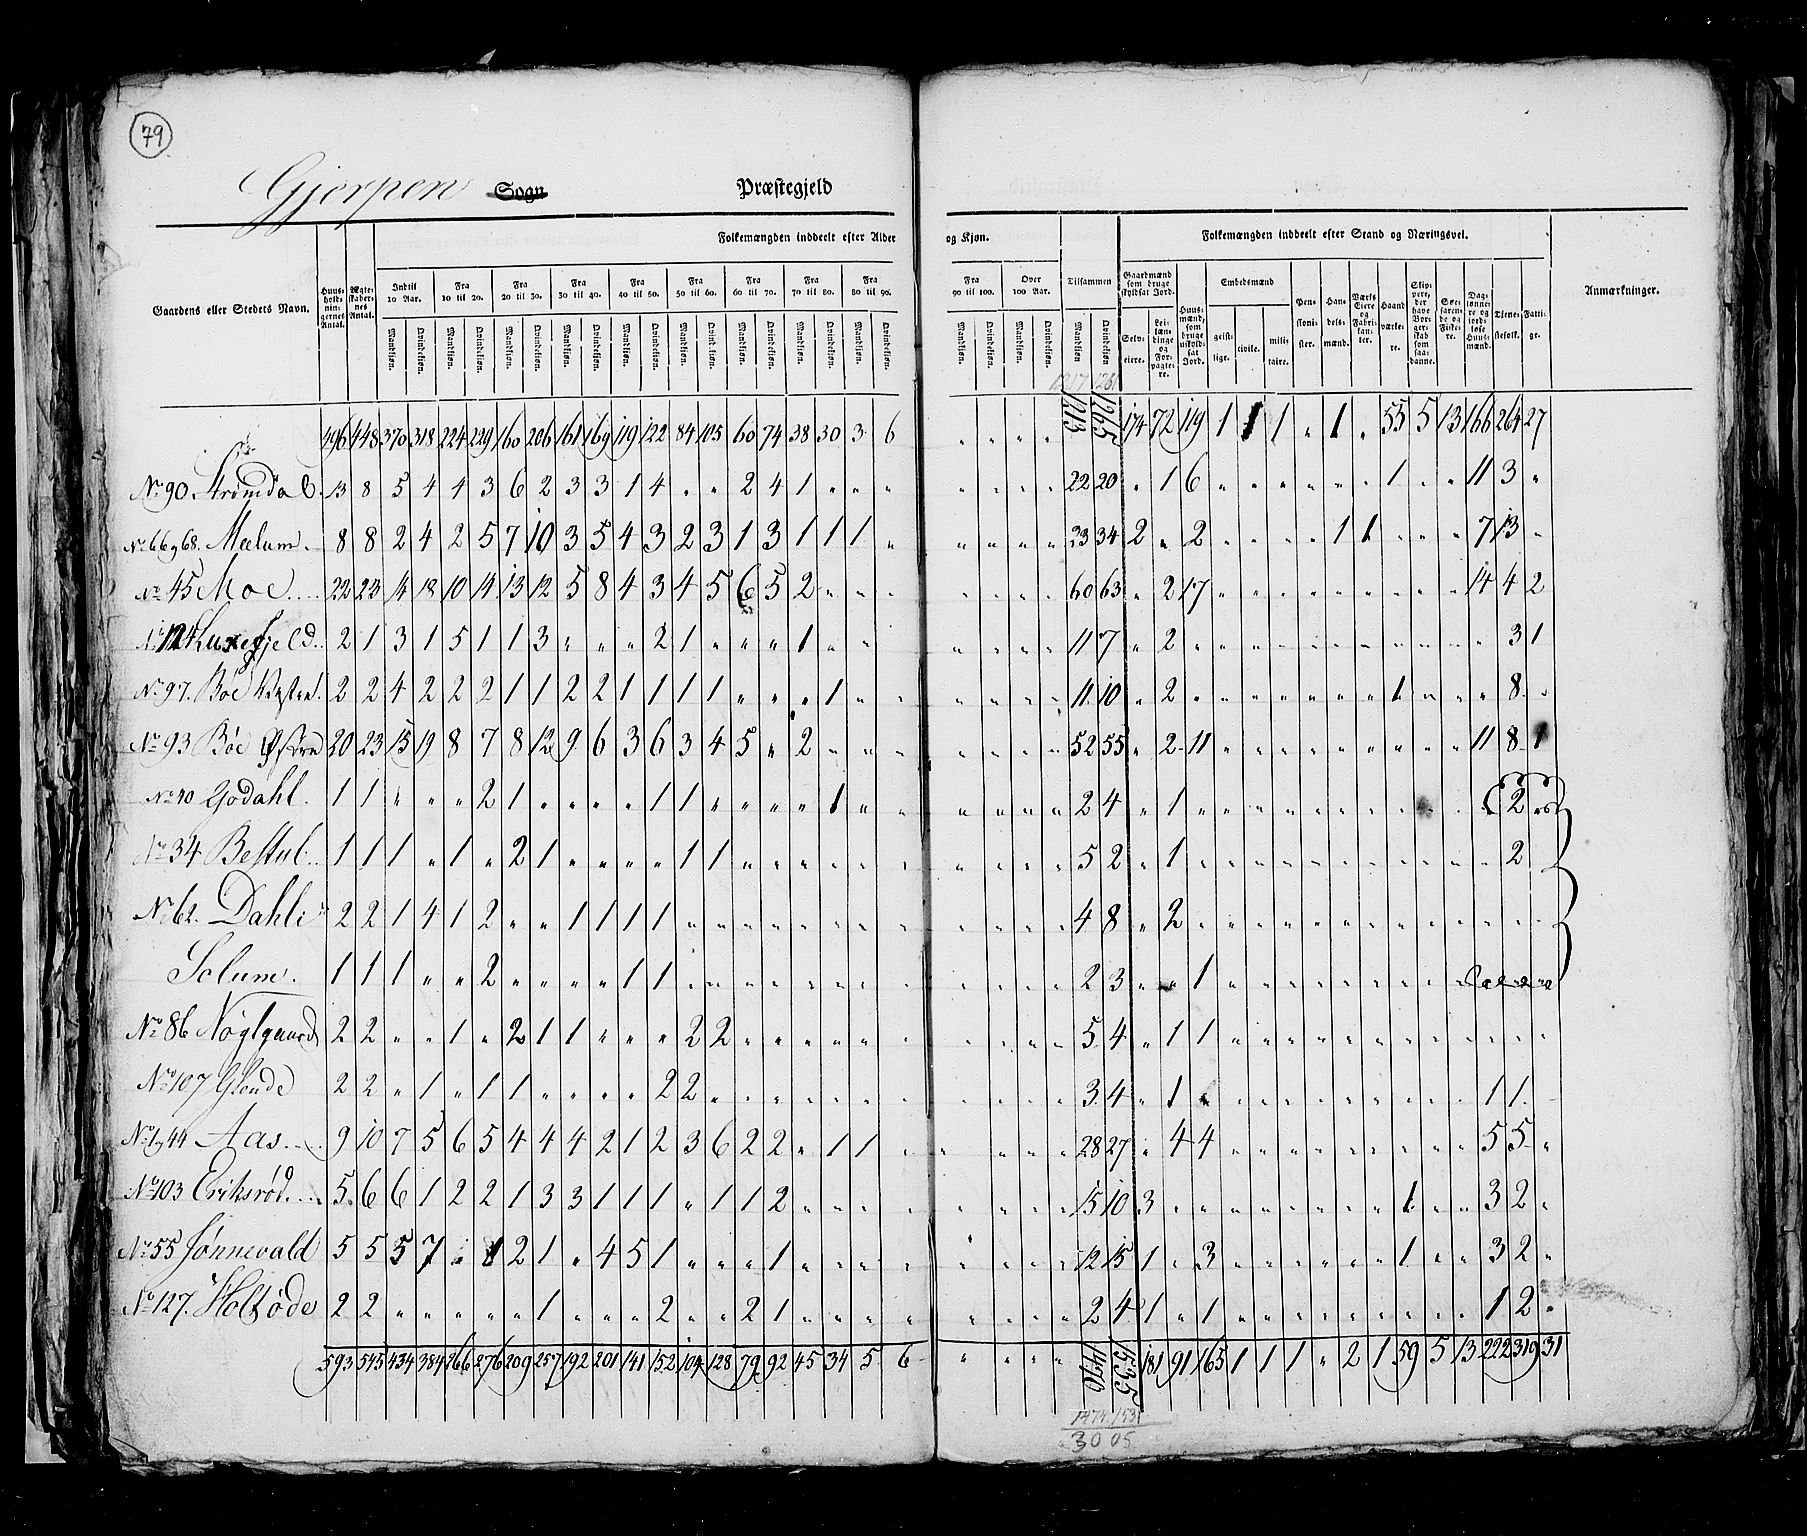 79
Gjerpen Sogn Præstegjeld
Folkemængden inddeelt efter Alder og Kjøn. Folkemængden inddeelt efter Stand og Næringsvei.
Gaardens eller Stedets Navn. Huusholdningernes Antal. Ægteskabernes Antal. Indtil 10 Aar. Fra 10 til 20. Fra 20 til 30. Fra 30 til 40. Fra 40 til 50. Fra 50 til 60. Fra 60 til 70. Fra 70 til 80. Fra 80 til 90. Fra 90 til 100. Over 100 Aar. Tilsammen Gaardmænd som bruge skyldsat Jord. Huusmænd, som bruge uskyldsat Jord. Embedsmænd Pensionister. Handelsmænd. Værks Eiere og Fabrikanter. Haandværkere. Skippere, der have Borgerskab som saadanne. Søefarende og Fiskere. Dagslønnere og jordløse Huusmænd. Tienestefolk. Fattige. Anmærkninger.
Mandkjøn. Qvindekjøn. Mandkjøn. Qvindekjøn. Mandkjøn. Qvindekjøn. Mandkjøn. Qvindekjøn. Mandkjøn. Qvindekjøn. Mandkjøn. Qvindekjøn. Mandkjøn. Qvindekjøn. Mandkjøn. Qvindekjøn. Mandkjøn. Qvindekjøn. Mandkjøn. Qvindekjøn. Mandkjøn. Qvindekjøn. Mandkjøn Qvindekjøn. Selveiere. Leilændinge og Forpagtere. geistlige. civile. militaire.
1217 1261
496 448 370 318 224 229 160 206 161 169 119 122 84 105 60 74 38 30 3 6 " " " " 1213 1265 174 72 119 1 1 1 " 1 " 55 5 13 166 264 27
No 90 Strømdal. 13 8 5 4 4 3 6 2 3 3 1 4 " " 2 4 1 " " " " " " " 22 20 " 1 6 " " " " " " 1 " " 11 3 "
No 66 og 68. Mælum. 8 8 2 4 2 5 7 10 3 5 4 3 2 3 1 3 1 1 1 " " " " " 23 34 2 " 2 " " " " 1 1 " " " 7 13 "
No 45 Moe. 22 23 14 18 10 14 13 12 5 8 4 3 4 5 6 5 2 " " " " " " " 60 63 " 2 17 " " " " " " " " " 14 4 2
No 124 Luxefjeld. 2 1 3 1 5 1 1 3 " " " 2 1 " " " 1 " " " " " " 11 7 " 2 " " " " " " " " " " " 3 1
No 97. Bøe Vestre. 2 2 4 2 2 2 1 1 2 2 1 1 1 1 " " " 1 " " " " " " 11 10 " 2 " " " " " " " 1 " " " 8 "
No 93 Bøe Østre 20 23 15 19 8 7 8 12 9 6 3 6 3 4 5 " 2 " " " " " " 52 55 " 2 11 " " " " " " " " " 11 8 1
No 40 Godahl. 1 1 " " " 2 1 " " " " 1 1 " " " " 1 " " " " " " 2 4 " 1 " " " " " " " " " " " 2
No 34 Bestul. 1 1 1 " 1 " 2 1 " " " " 1 1 " " " " " " " " " " 5 2 " 1 " " " " " " " " " " " 2
No 62. Dahli 2 2 1 4 1 2 " " 1 1 1 1 " " " " " " " " " " " " 4 8 " 2 " " " " " " " " " " " " "
Solum. 1 1 1 " " 2 " " " " 1 1 " " " " " " " " " " " " 2 3 " " 1 " " " " " " " " "
No 86 Nøglgaard 2 2 " " 1 " 2 1 1 " " " 2 2 " " " " " " " " " " 5 4 " 1 1 " " " " " " " " " " " "
No 107 Glende 2 2 " 1 " 1 1 " " " " 2 2 " " " " " " " " " " " 3 4 " 1 " " " " " " " " " 1 1
No 1 og 44 Aas. 9 10 7 5 6 5 4 4 4 2 1 2 3 6 2 2 " 1 1 " " " " " 28 27 " 4 4 " " " " " " " " " 5 5 "
No 103 Eriksrød. 5 6 6 1 2 2 1 3 3 1 1 1 " 1 1 2 " " " " " " " " 15 10 3 " " " " " " " " 1 " " 3 2 "
No 55 Jønnevald 5 5 5 7 " 1 2 1 " 4 5 1 " " " 1 " " " " " " " " 12 15 1 " 3 " " " " " " 1 " " 3 2 "
No 127. Holtøde 2 2 " " " " " 1 " " " 2 " " 2 1 " " " " " " " " 2 4 1 " 1 " " " " " " " " " 1 2 "
593 545 434 384 266 276 209 257 192 201 141 152 104 128 79 92 45 34 5 6 " " " " 1470 1535 181 91 165 1 1 1 " 2 1 59 5 13 222 319 31
1474 1531
3005